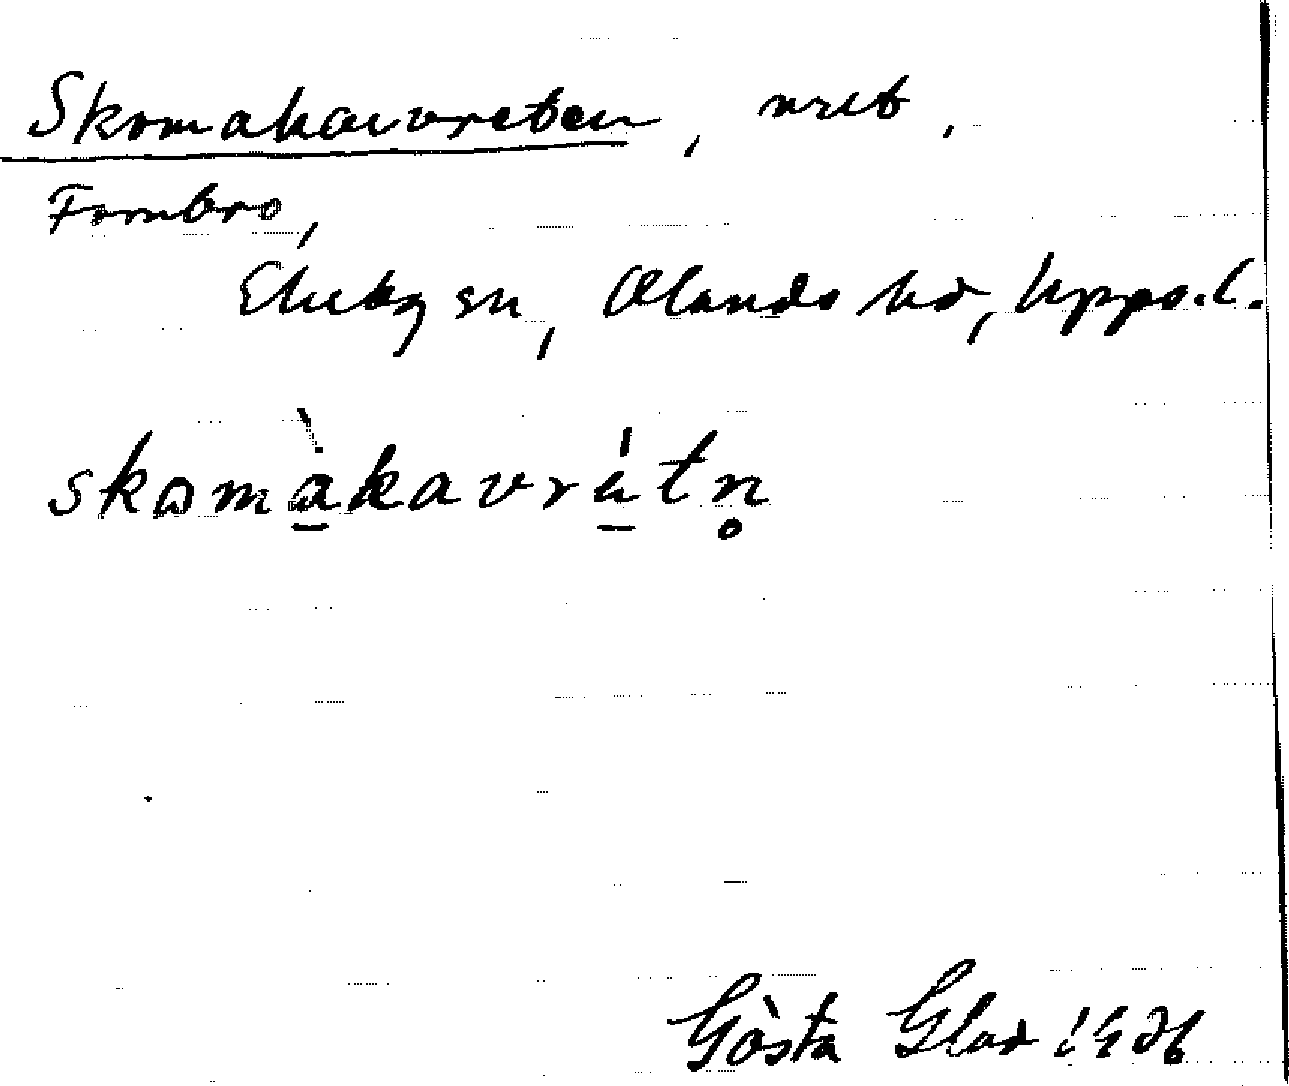 Skomakarvreten, vret.
Fornbro,
Ekeby sn, Olands hd, Upps.l.
skomàkavrátn̥
Gösta Glad